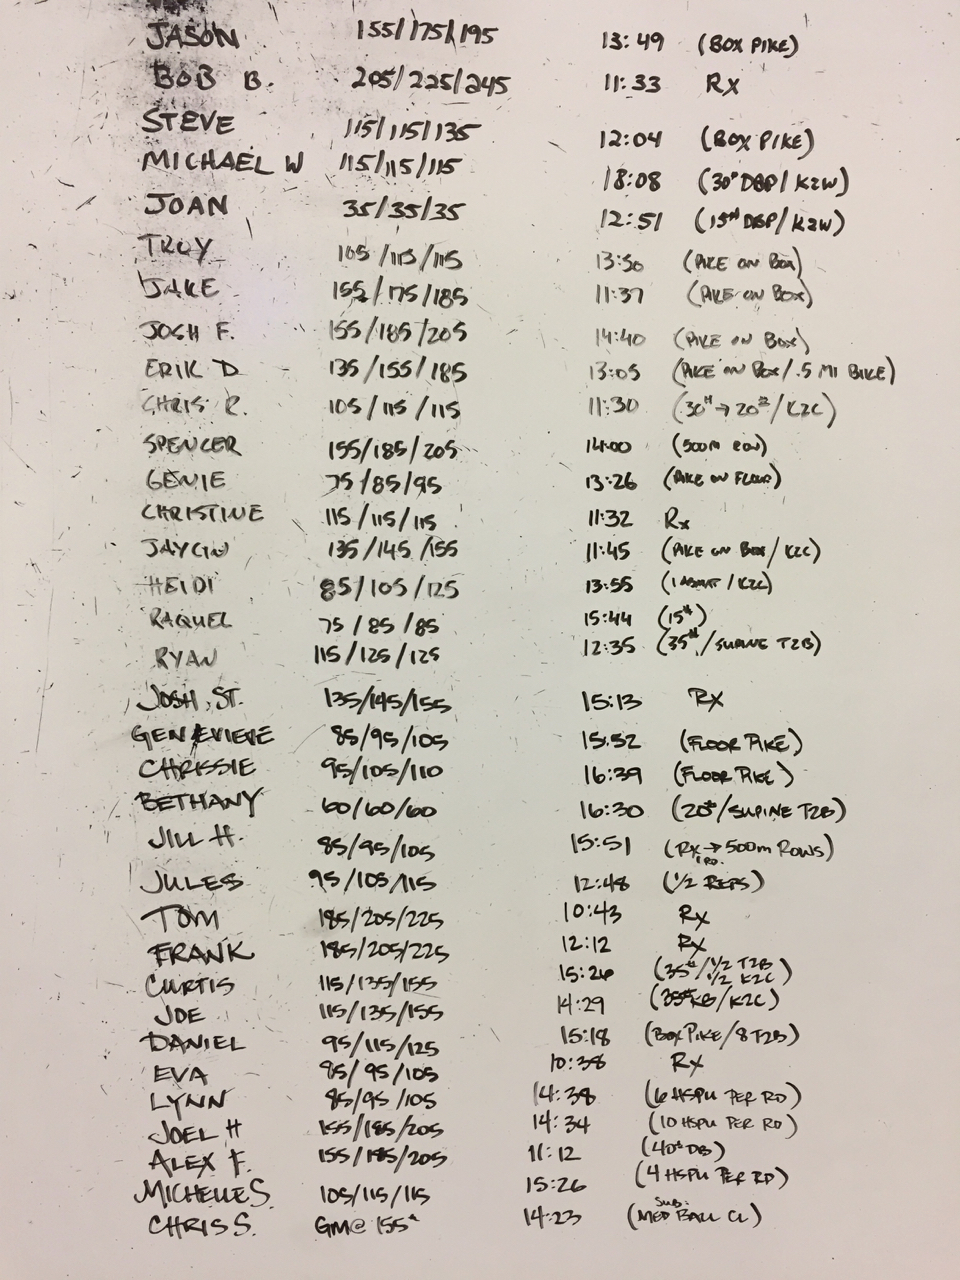 JASON 155/175/195 13:49 (BOX PIKE)
BOB B. 205/225/245 11:33 RX
STEVE 115/115/135 12:04 (BOX PIKE)
MICHAEL W 115/115/115 18:08 (30# DBP/K2W)
JOAN 35/35/35 12:51 (15# DBP/K2W)
TROY 105/115/115 13:50 (PIKE ON BOX)
JAKE 155/175/185 11:37 (PIKE ON BOX)
JOSH F. 155/185/205 14:40 (PIKE ON BOX)
ERIK D 135/155/185 13:05 (PIKE ON BOX/.5 MI BIKE)
CHRIS R. 105/115/115 11:30 (30#→20#/K2C)
SPENCER 155/185/205 14:00 (500M ROW)
GENIE 75/85/95 13:26 (PIKE ON FLOOR)
CHRISTINE 115/115/115 11:32 Rx
JAYCIN 135/145/155 11:45 (PIKE ON BOX/K2C)
HEIDI 85/105/125 13:55 (1 ABMAT/K2C)
RAQUEL 75/85/85 15:44 (15#)
RYAN 115/125/125 12:35 (35#/SUPINE T2B)
JOSH ST. 135/145/155 15:13 RX
GENEVIEVE 85/95/105 15:52 (FLOOR PIKE)
CHRISSIE 95/105/110 16:39 (FLOOR PIKE)
BETHANY 60/60/60 16:30 (20#/SUPINE T2B)
JILL H. 85/95/105 15:51 (RX 1 RD.→500m ROWS)
JULES 95/105/115 12:48 (1/2 REPS)
TOM 185/205/225 10:43 RX
FRANK 185/205/225 12:12 RX
CURTIS 115/135/155 15:26 (35#/1/2 T2B 1/2 K2C)
JOE 115/135/155 14:29 (35# KB/K2C)
DANIEL 95/115/125 15:18 (BOX PIKE/8 T2B)
EVA 85/95/105 10:38 RX
LYNN 85/95/105 14:38 (6 HSPU PER RD)
JOEL H 155/185/205 14:34 (10 HSPU PER RD)
ALEX F. 155/185/205 11:12 (40# DB)
MICHELLE S. 105/115/115 15:26 (4 HSPU PER RD)
CHRIS S. GM@ 155# 14:23 (SUB. MED BALL CL)